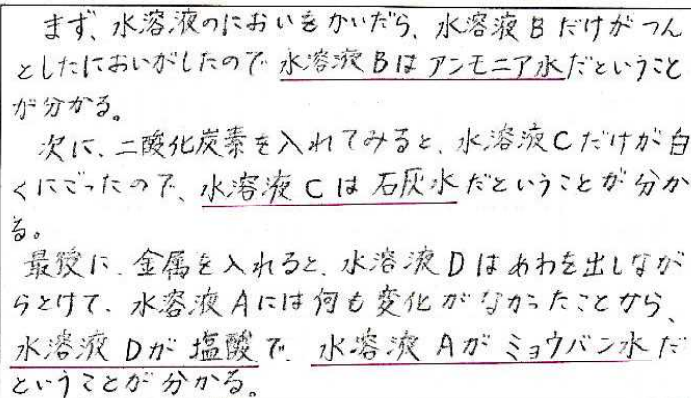 まず、水溶液のにおいをかいだら、水溶液Bだけがつん
としたにおいがしたので 水溶液Bはアンモニア水だということ
が分かる。
次に、二酸化炭素を入れてみると、水溶液Cだけが白
くにごったので、水溶液Cは石灰水だということが分か
る。
最後に、金属を入れると、水溶液Dはあわを出しなが
らとけて、水溶液Aには何も変化がなかったことから、
水溶液Dが塩酸で、水溶液Aがミョウバン水だ
ということが分かる。